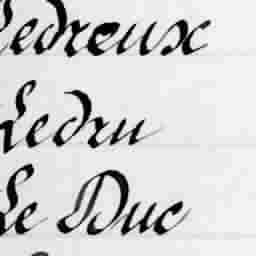 Ledreux
Ledru
Le Duc